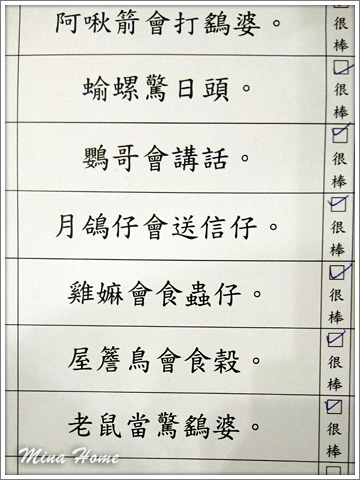 阿啾箭會打鷂婆。
很棒
蝓螺驚日頭。
很棒
鸚哥會講話。
很棒
月鴿仔會送信仔。
很棒
雞嫲會食蟲仔。
很棒
屋簷鳥會食穀。
很棒
老鼠當驚鷂婆。
很棒
Mina Home